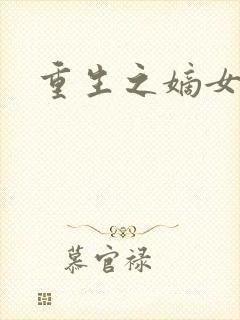 重生之嫡女
慕官禄